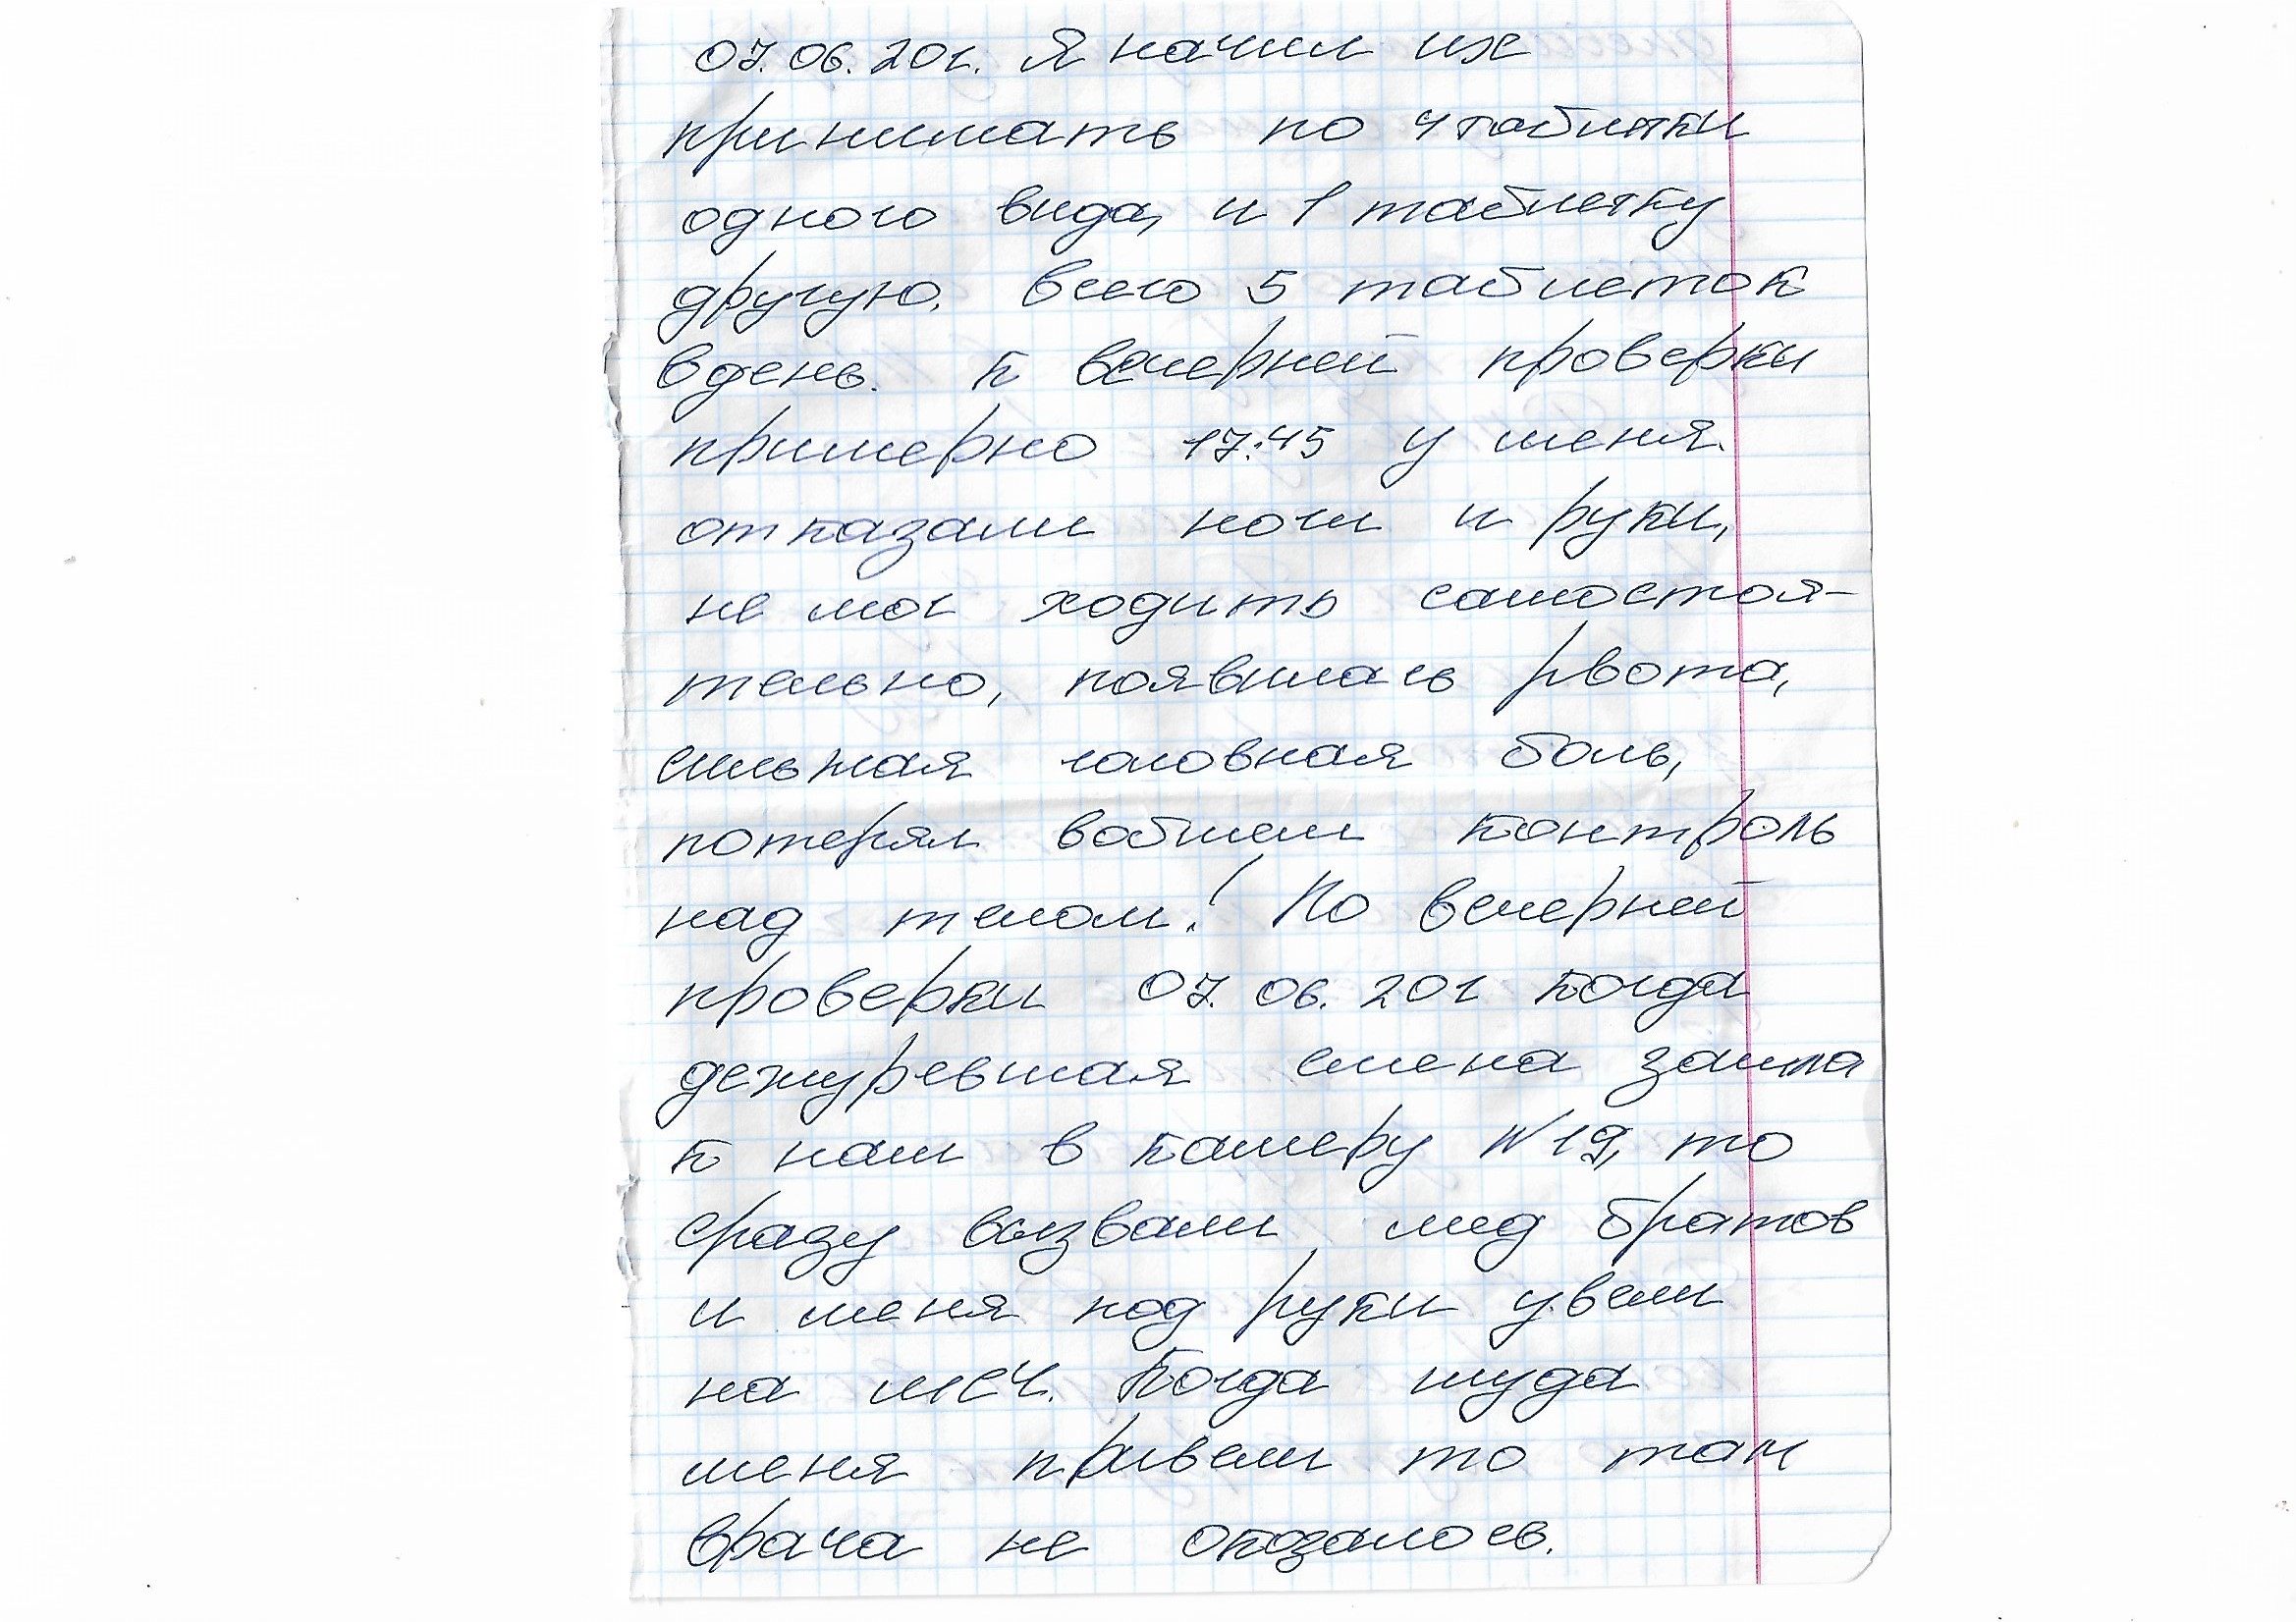 07.06.20г. Я начил их
принимать по 4 таблетки
одного вида, и 1 таблетку
другую, всего 5 таблеток
вдень. к вечерней проверки
примерно 17:45 у меня.
отказали ноги и руки,
не мог ходить самостоя-
тельно, появилась рвота,
сильная головная боль,
потерял вобшем контроль
над телом! По вечерней
проверки 07.06.20г когда
дежуревшая смена зашла
к нам в камеру N19, то
сразу вызвали мед братов
и меня под руки увели
на мсч. Когда туда
меня привели то там
врача не оказалось.